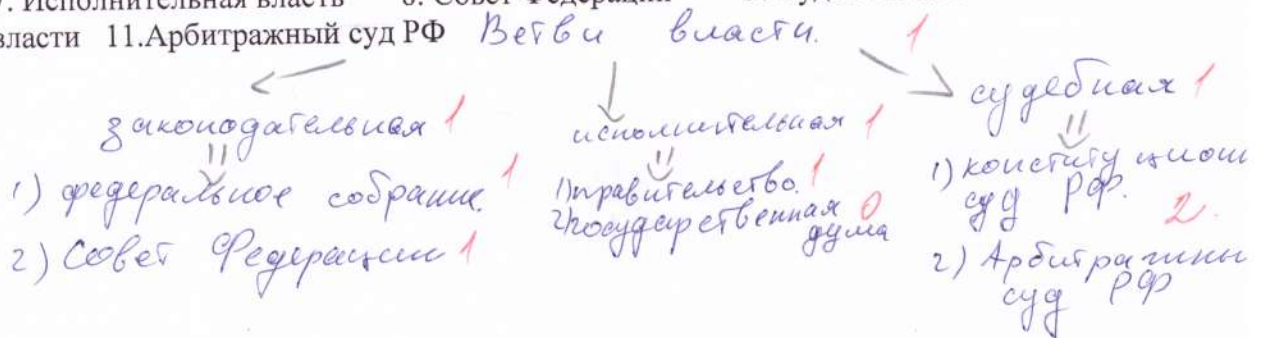 7. Исполнительная власть
власти 11.Арбитражный суд РФ Ветви власти. 1
законодательная 1
1) федеральное собрание. 1
2) Совет Федерации 1
исполнительная 1
1) правительство. 1
2) государственная 0
дума
судебная 1
1) конституцион
суд РФ. 2.
2) Арбитражны
суд РФ